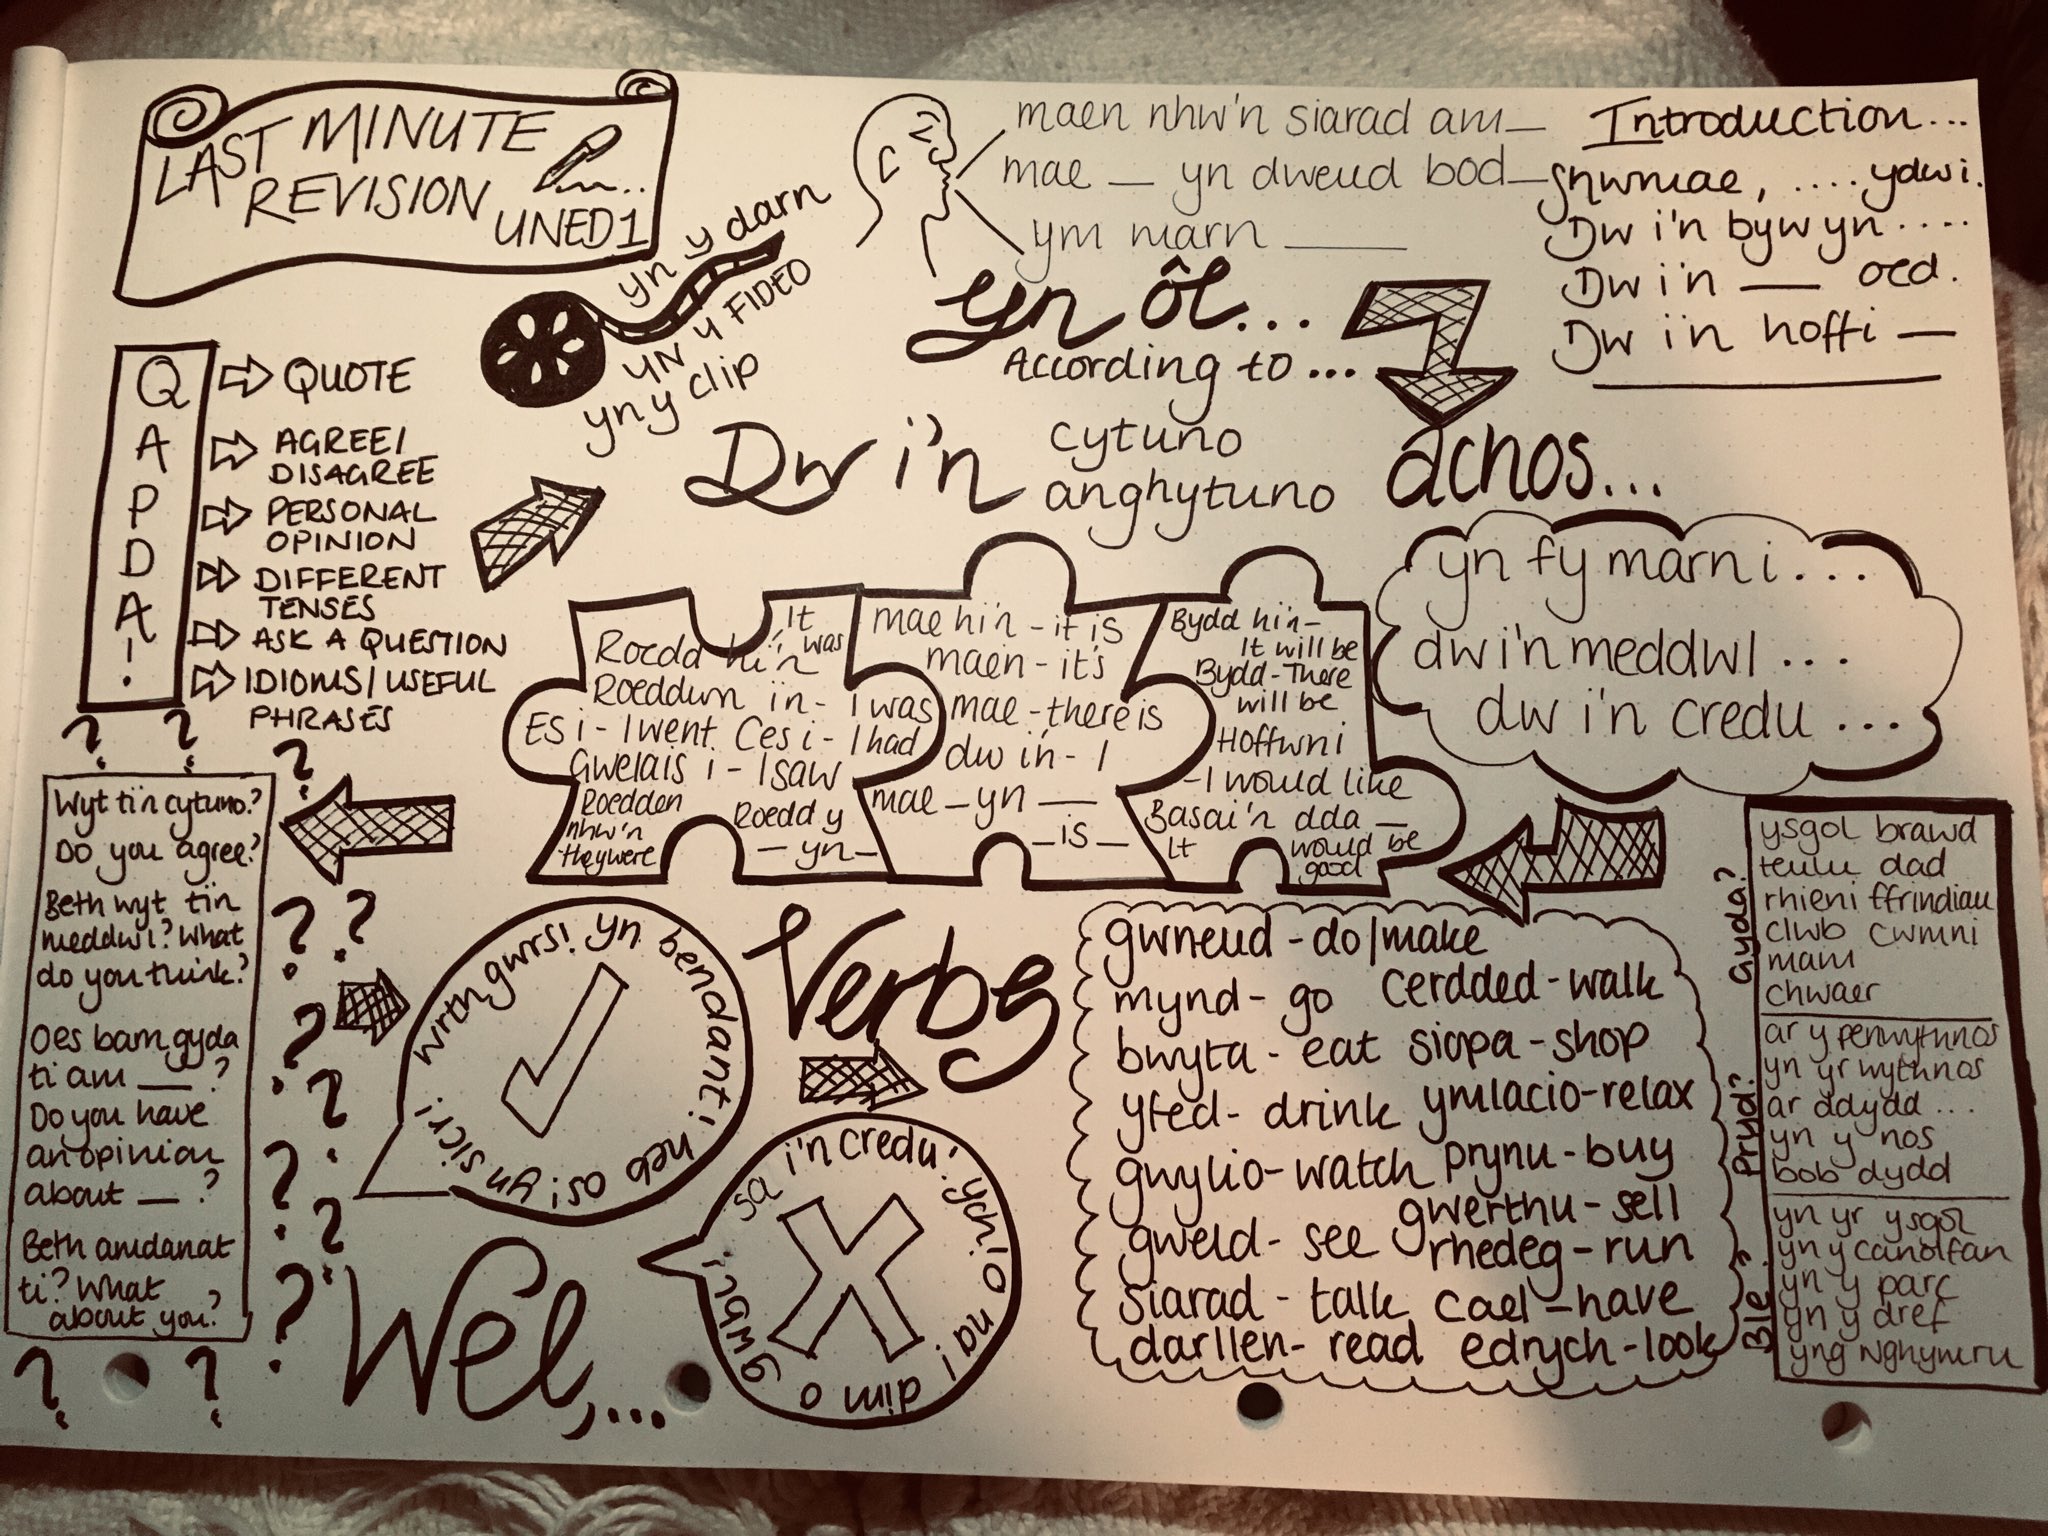 LAST MINUTE
REVISION
UNED 1
yn y darn
YN Y FIDEO
yn y clip
maen nhw'n siarad am _
mae _ yn dweud bod _
ym marn ____
yn ôl...
According to...
Introduction...
Shwmae, .... ydw i.
Dw i'n byw yn ....
Dw i'n __ oed.
Dw i'n hoffi __
Q
A
P
D
A
!
QUOTE
AGREE/
DISAGREE
PERSONAL
OPINION
DIFFERENT
TENSES
ASK A QUESTION
IDIOMS/USEFUL
PHRASES
Dw i'n
cytuno
anghytuno
achos...
yn fy marn i...
dw i'n meddwl ...
dw i'n credu ...
It
Roedd hi'n was
Roeddwn i'n - I was
Es i - I went Ces i - I had
Gwelais i - I saw
Roedden
nhw'n
they were
Roedd y
_ yn _
mae hi'n - it is
maen - it's
mae - there is
dw i'n - I
mae _ yn __
_ is _
Bydd hi'n -
It will be
Bydd - There
will be
Hoffwn i
- I would like
Basai'n dda -
It would be
good
? ? ?
Wyt ti'n cytuno?
Do you agree?
Beth wyt ti'n
meddwl? What
do you think?
Oes barn gyda
ti am __ ?
Do you have
an opinion
about _ ?
Beth amdanat
ti? What
about you?
? ? ? ? ? ? ? ? ?
wrth gwrs! yn bendant! heb os! yn sicr!
Verbs
sa i'n credu! ych! o na! dim o gwbl!
Wel,...
gwneud - do/make
mynd - go cerdded - walk
bwyta - eat siopa - shop
yfed - drink ymlacio - relax
gwylio - watch prynu - buy
gwerthu - sell
gweld - see rhedeg - run
siarad - talk cael - have
darllen - read edrych - look
Gyda?
ysgol brawd
teulu dad
rhieni ffrindiau
clwb cwmni
mam
chwaer
Pryd?
ar y penwythnos
yn yr wythnos
ar ddydd ...
yn y nos
bob dydd
Ble?
yn yr ysgol
yn y canolfan
yn y parc
yn y dref
yng Nghymru